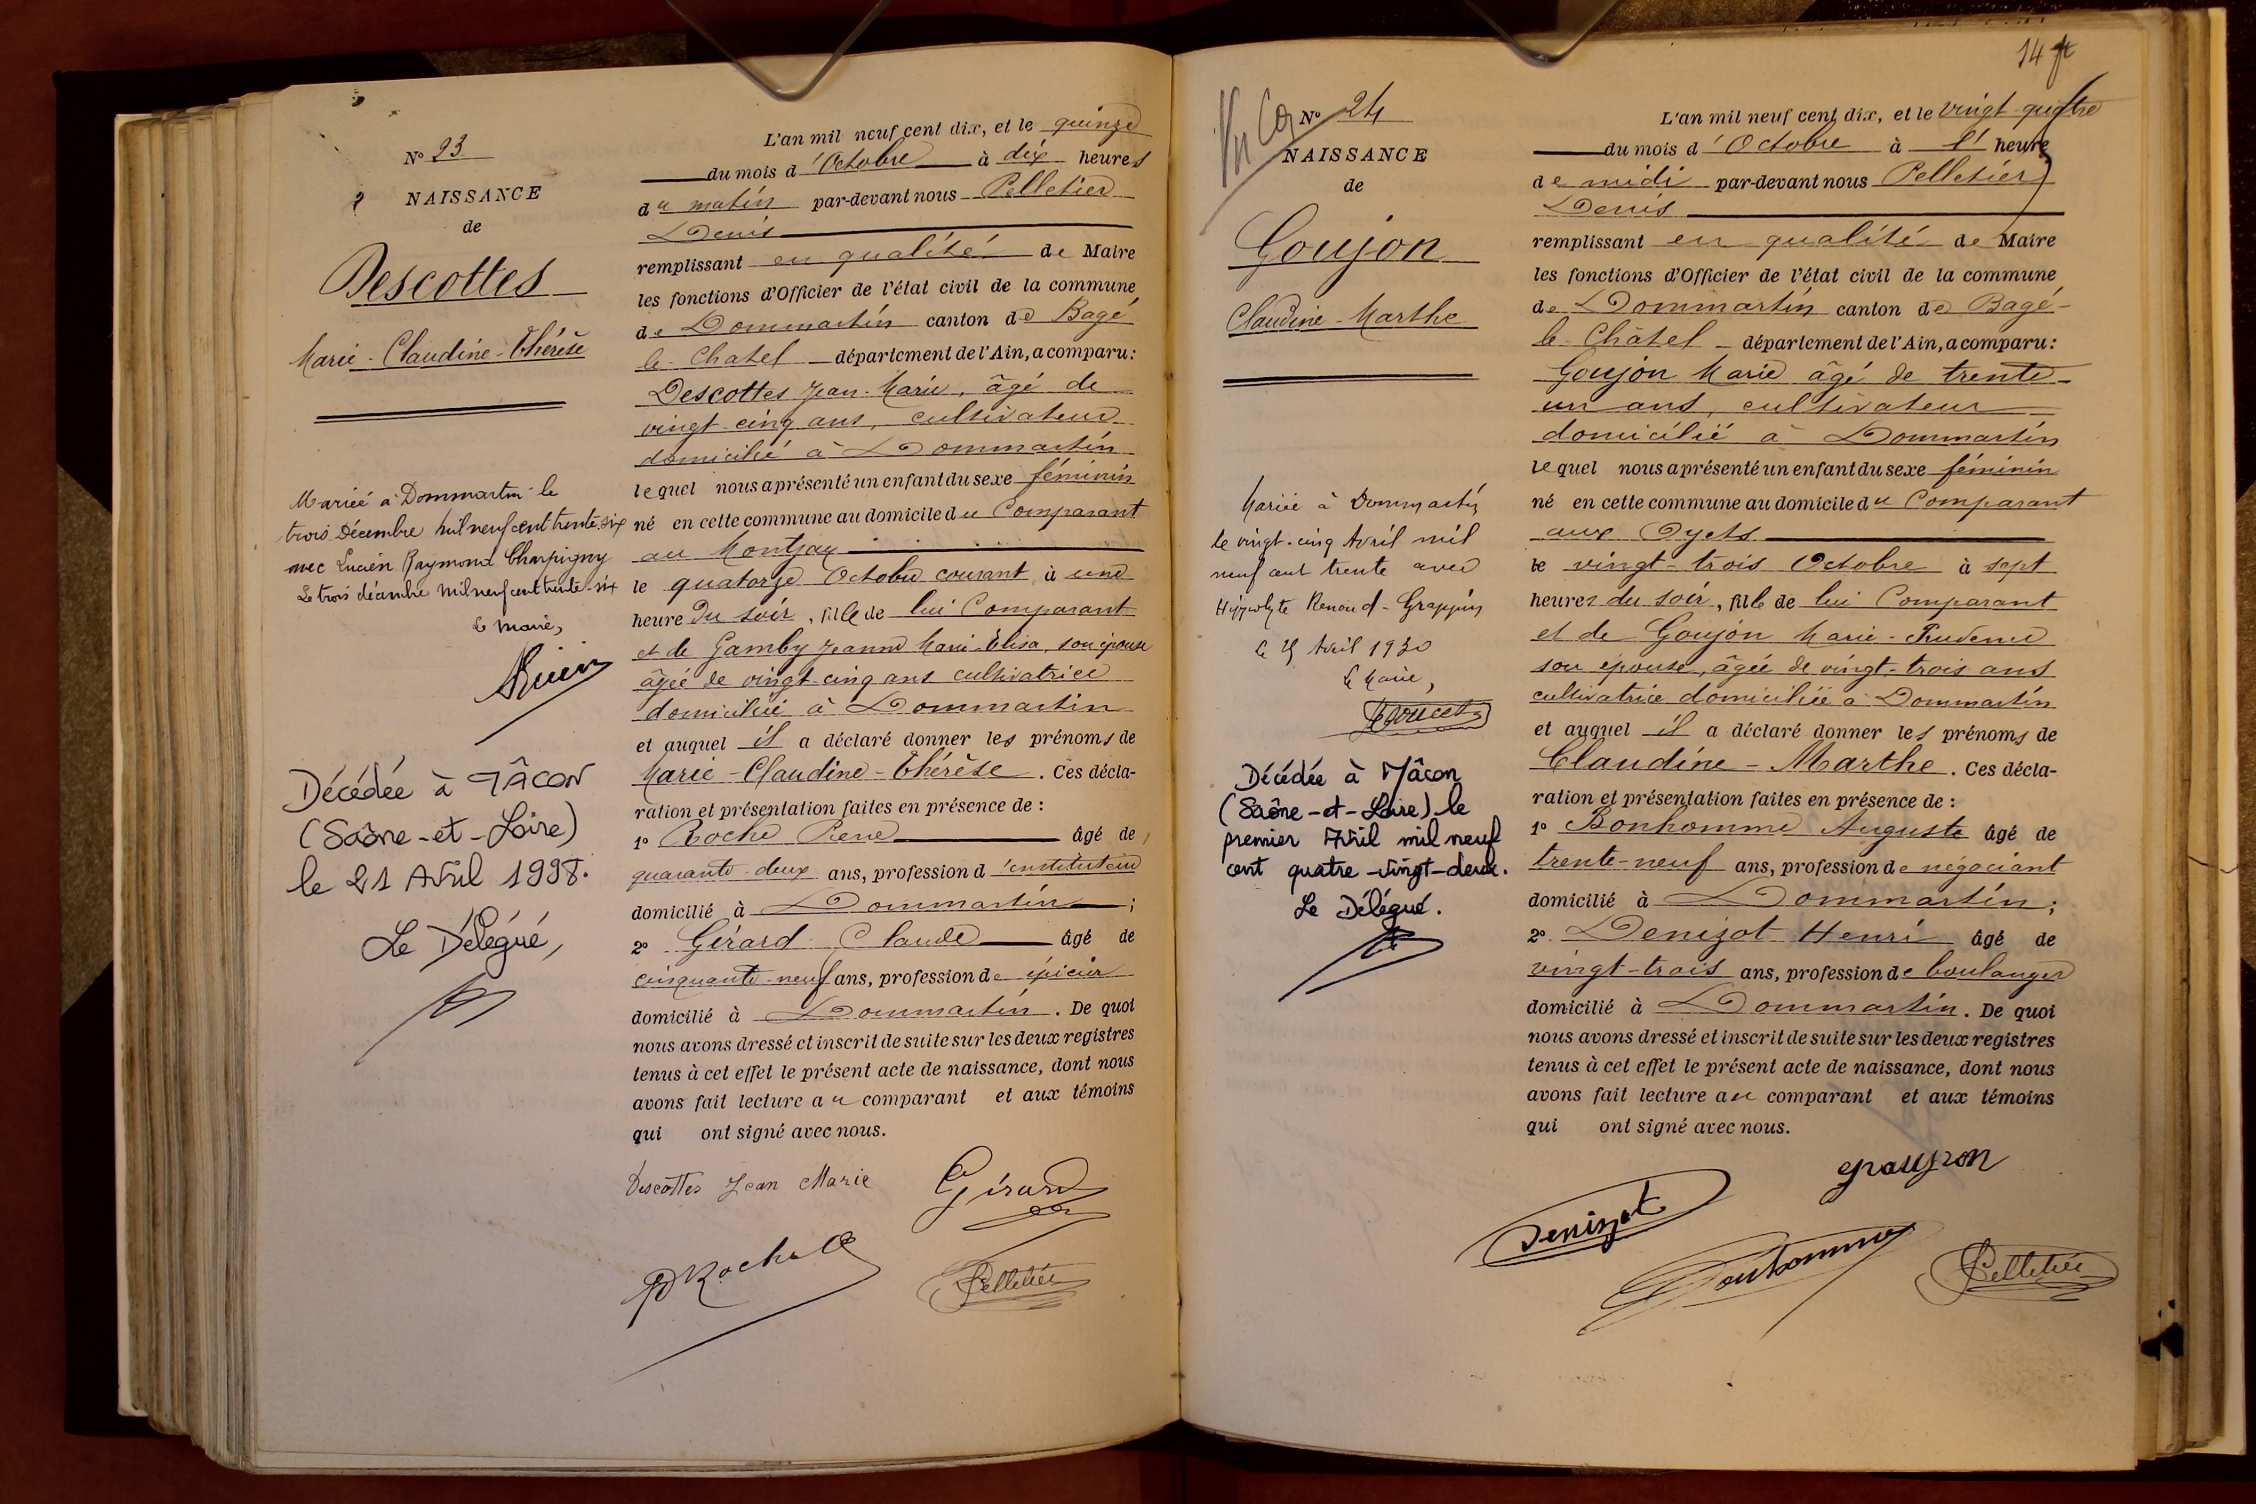 N° 23
NAISSANCE
de
Descottes
Marie-Claudine-Thérèse
Mariée à Dommartin le
trois Décembre mil neuf cent trente-six
avec Lucien Raymond Charpigny
Le trois décembre mil neuf cent trente-six
le maire,
Décédée à MÂCON
(Saône-et-Loire)
le 21 Avril 1998.
Le Délégué,
L'an mil neuf cent dix, et le quinze
du mois d'Octobre à dix heures
du matin par-devant nous Pelletier
Denis
remplissant en qualité de Maire
les fonctions d'Officier de l'état civil de la commune
de Dommartin canton de Bagé
le Chatel département de l'Ain, a comparu :
Descottes Jean-Marie, âgé de
vingt-cinq ans, cultivateur
domicilié à Dommartin
lequel nous a présenté un enfant du sexe féminin
né en cette commune au domicile du Comparant
au Montjay
le quatorze Octobre courant à une
heure du soir, fille de lui Comparant
et de Gamby Jeanne Marie-Elisa, son épouse
âgée de vingt-cinq ans cultivatrice
domiciliée à Dommartin
et auquel il a déclaré donner les prénoms de
Marie-Claudine-Thérèse. Ces décla-
ration et présentation faites en présence de :
1° Roche René âgé de
quarante-deux ans, profession d'instituteur
domicilié à Dommartin ;
2° Gérard Claude âgé de
cinquante-neuf ans, profession de épicier
domicilié à Dommartin. De quoi
nous avons dressé et inscrit de suite sur les deux registres
tenus à cet effet le présent acte de naissance, dont nous
avons fait lecture au comparant et aux témoins
qui ont signé avec nous.
Descottes Jean Marie Gérard
Roche Pelletier
14
N° 24
NAISSANCE
de
Goujon
Claudine-Marthe
Mariée à Dommartin
le vingt-cinq Avril mil
neuf cent trente avec
Hippolyte Renoud-Grappin
le 25 Avril 1930
le Maire,
Décédée à Mâcon
(Saône-et-Loire) le
premier Avril mil neuf
cent quatre-vingt-deux.
Le Délégué.
L'an mil neuf cent dix, et le vingt-quatre
du mois d'Octobre à l' heure
de midi par-devant nous Pelletier
Denis
remplissant en qualité de Maire
les fonctions d'Officier de l'état civil de la commune
de Dommartin canton de Bagé-
le-Châtel département de l'Ain, a comparu :
Goujon Marie âgé de trente-
un ans, cultivateur
domicilié à Dommartin
lequel nous a présenté un enfant du sexe féminin
né en cette commune au domicile du Comparant
aux Oyets
le vingt-trois Octobre à sept
heures du soir, fille de lui Comparant
et de Goujon Marie-Prudence
son épouse, âgée de vingt-trois ans
cultivatrice domiciliée à Dommartin
et auquel il a déclaré donner les prénoms de
Claudine-Marthe. Ces décla-
ration et présentation faites en présence de :
1° Bonhomme Auguste âgé de
trente-neuf ans, profession de négociant
domicilié à Dommartin ;
2° Denizot Henri âgé de
vingt-trois ans, profession de boulanger
domicilié à Dommartin. De quoi
nous avons dressé et inscrit de suite sur les deux registres
tenus à cet effet le présent acte de naissance, dont nous
avons fait lecture au comparant et aux témoins
qui ont signé avec nous.
goujon
Denizot
Bonhomme Pelletier